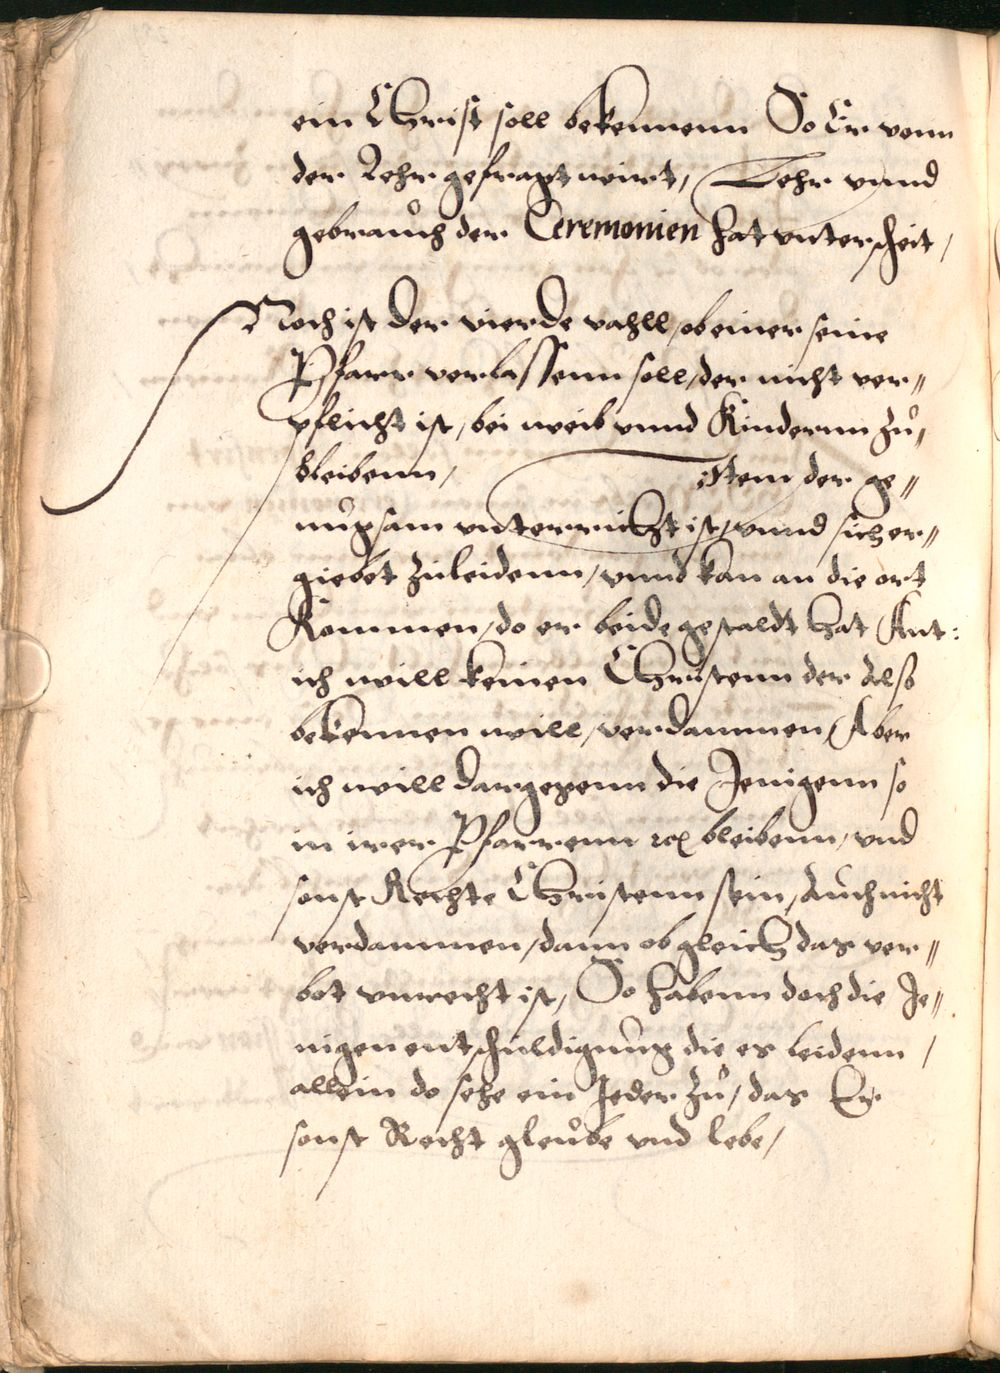 ein Christ soll bekennenn So Er vonn
der Lehr gefragt wirt, Lehr vnnd
gebrauch der Ceremonien hat vnterscheit,
Noch ist der vierde vahll, ob einer seine
Pfarr verlassenn soll, der nicht ver„
pflicht ist, bei weib vnnd Kindernn zu„
bleibenn, Item der ge„
nugsam vnterricht ist, vnnd sich er„
giebet zuleidenn, vnnd kan an die ort
Kommen, do er beide gestaldt hat Ant:
ich will keinen Christenn der Also
bekennen will, verdammen, Aber
ich will dargegenn die Jenigenn so
in irer Pfarrenn bleibenn, vnd
sonst Rechte Christenn sein, Auch nicht
verdammen, dann ob gleich das ver„
bot vnrecht ist, So habenn doch die Je„
nigen entschuldigung die es leidenn,
allein do sehe ein Jeder zu, das Er
sonst Recht gleube vnd lebe,